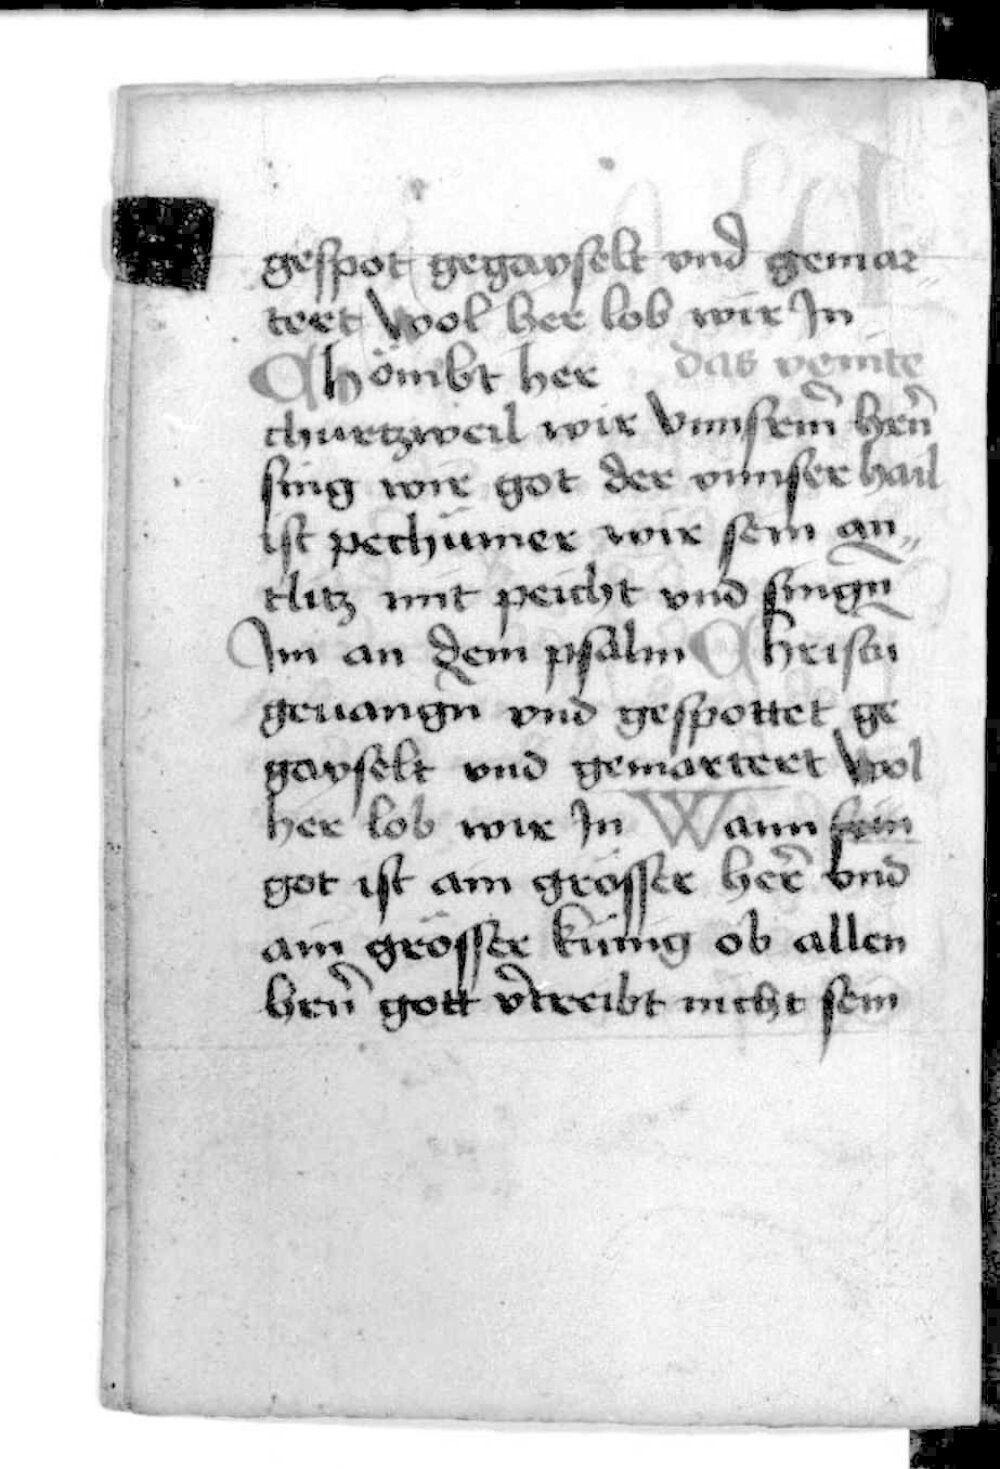 gespot gegayselt vnd gemar„
tert Wol her lob wir In
Chömbt her das venite
churtzweil wir Vnnserm̄ herñ
sing wir got der vnnser hail
ist pechümer wir sein an„
tlitz mit peicht vnd singn̄
Im an dem psalm Christū
geuangn̄ vnd gespottet ge
gayselt vnd gemartert Wol
her lob wir In Wann sein
got ist ain grösser her̄ vnd
ain grösser künig ob allen
herñ gott v̄treibt nicht sein